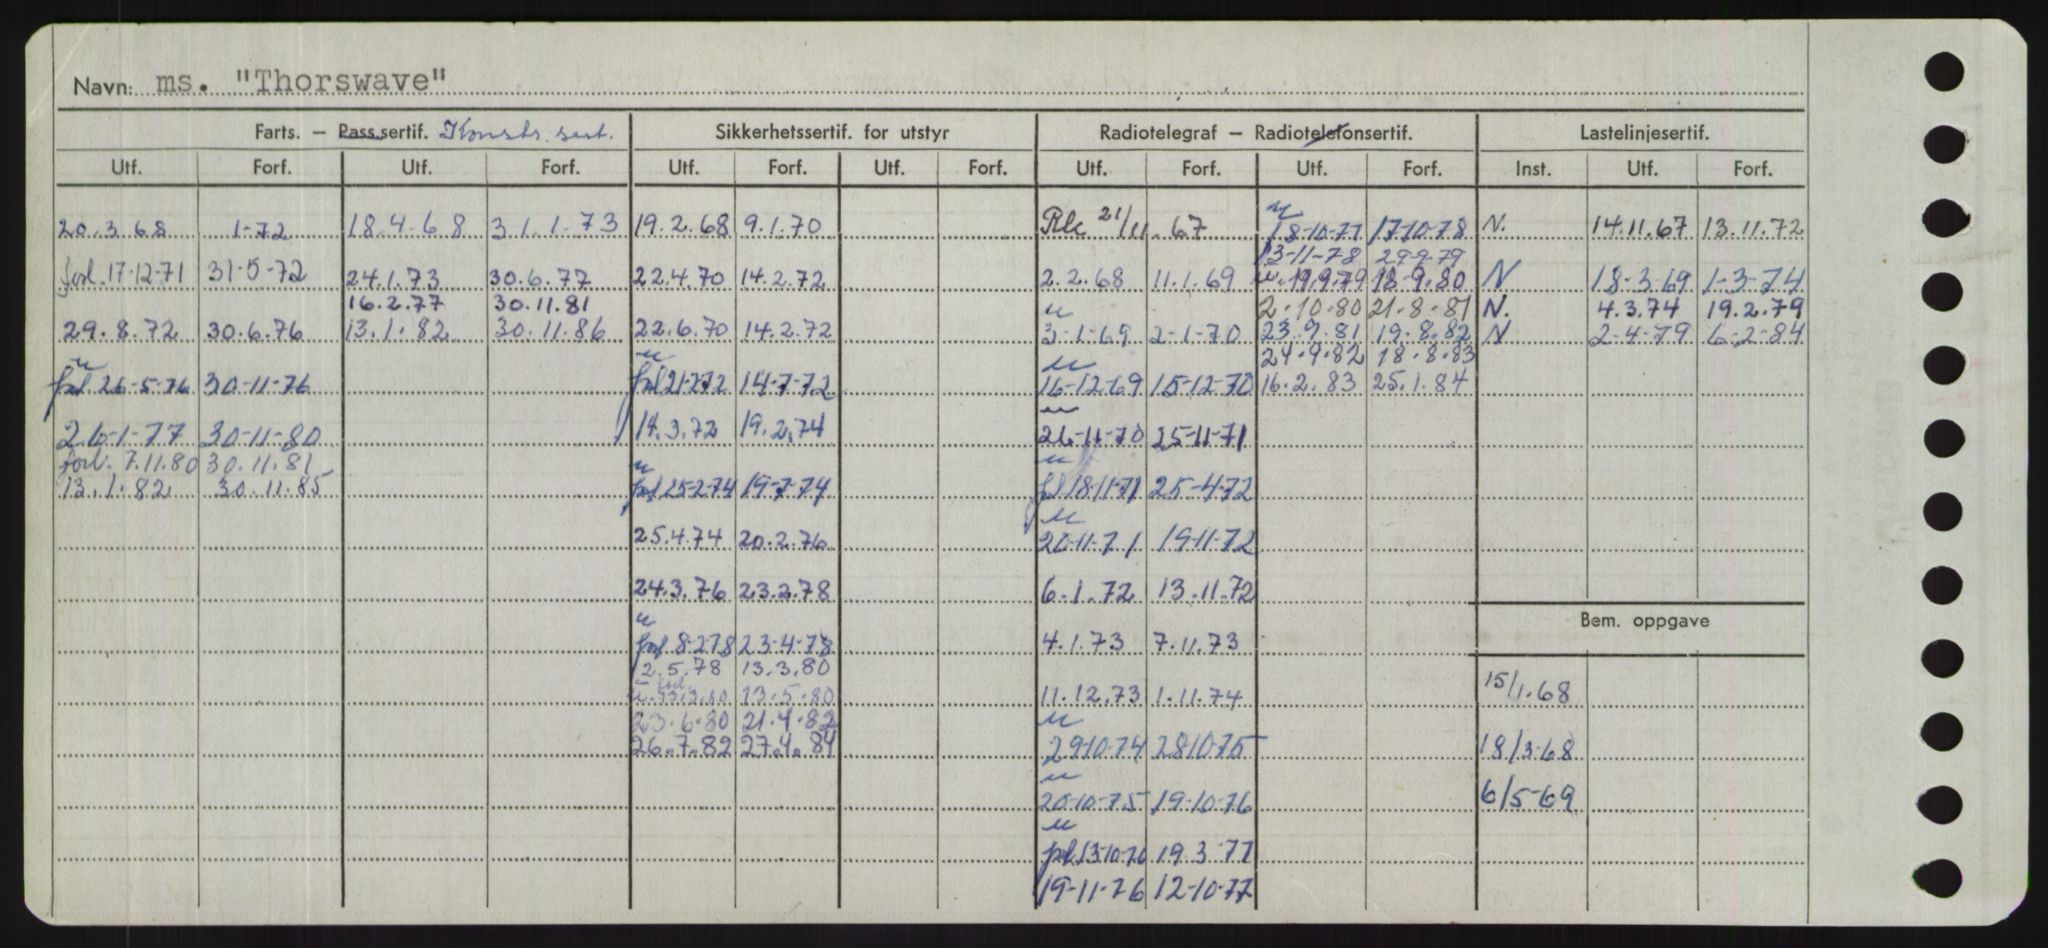 Navn: ms. "Thorswave"
Farts. – Pass.sertif. Konstr. sert. Sikkerhetssertif. for utstyr Radiotelegraf – Radiotelefonsertif. Lastelinjesertif.
Utf. Forf. Utf. Forf. Utf. Forf. Utf. Forf. Utf. Forf. Utf. Forf. Inst. Utf. Forf.
20.3.68 1-72
forl. 17-12-71 31-5-72
29.8.72 30.6.76
u
forl. 26-5-76 30-11-76
26-1-77 30-11-80
forl. 7.11.80 30.11.81
13.1.82 30.11.85
18.4.68 31.1.73
24.1.73 30.6.77
16.2.77 30.11.81
13.1.82 30.11.86
19.2.68 9.1.70
22.4.70 14.2.72
22.6.70 14.2.72
u
forl 21-2-72 14-7-72
14.3.72 19.2.74
u
forl 25-2-74 19-7-74
25.4.74 20.2.76
24.3.76 23.2.78
u
forl 8-2-78 23-4-78
2.5.78 13.3.80
u. forl. 13.3.80 13.5.80
23.6.80 21.4.82
26.7.82 27.4.84
Rlc 21/11.67
2.2.68 11.1.69
u
3-1-69 2-1-70
u
16-12-69 15-12-70
u
26-11-70 25-11-71
u
fl 18-11-71 25-4-72
u
20-11-71 19-11-72
6.1.72 13.11.72
4.1.73 7.11.73
11.12.73 1.11.74
u
29-10-74 28-10-75
u
20-10-75 19-10-76
u
forl. 13-10-76 19.3.77
19-11-76 12-10-77
u
18-10-77 17-10-78
13-11-78 29-9-79
u. 19.9.79 18.9.80
2.10.80 21.8.81
23.9.81 19.8.82
24.9.82 18.8.83
16.2.83 25.1.84
N. 14.11.67 13.11.72
N 18-3-69 1-3-74
N. 4.3.74 19.2.79
N 2-4-79 6-2-84
Bem. oppgave
15/1.68
18/3-68
6/5-69